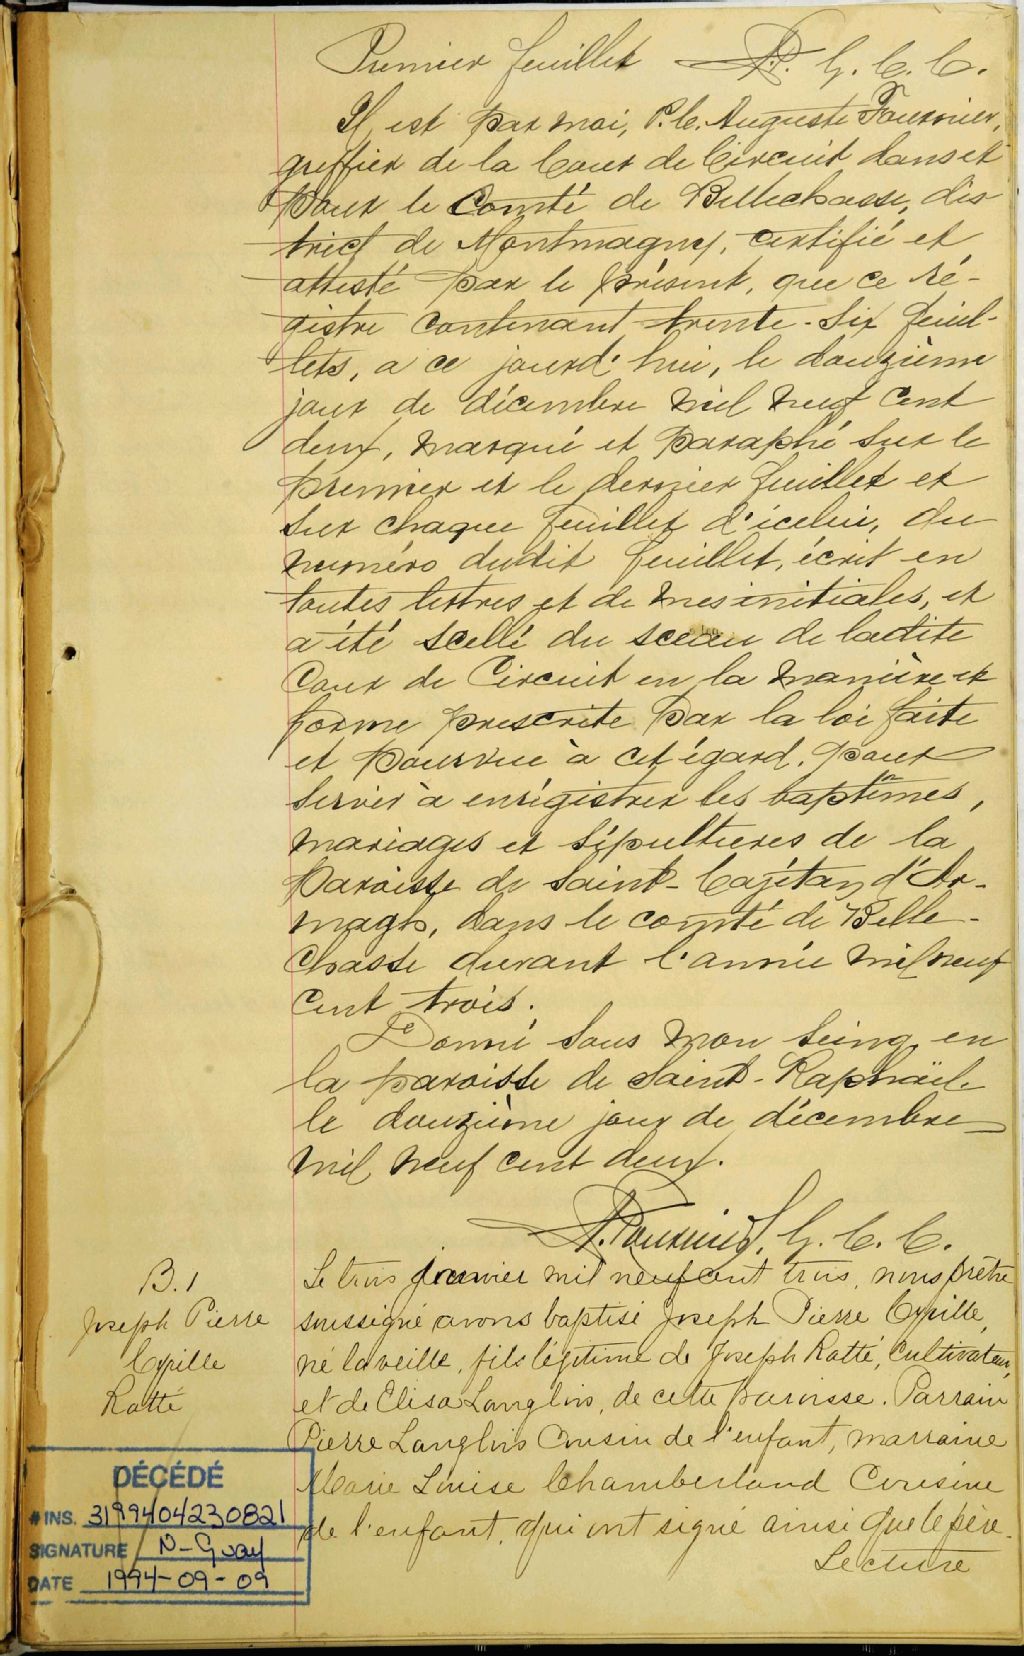 Premier feuillet P. G. C. C.
Il est par moi, P. C. Auguste Fournier,
greffier de la Cour de Circuit dans et
pour le Comté de Bellechasse, dis
trict de Montmagny, certifié et
attesté par le présent, que ce ré-
gistre contenant trente-six feuil-
lets, a ce jourd'hui, le douzième
jour de décembre mil neuf cent
deux, marqué et paraphé sur le
premier et le dernier feuillet et
sur chaque feuillet d'icelui, du
numéro dudit feuillet, écrit en
toutes lettres et de mes initiales, et
a été scellé du sceau de ladite
Cour de Circuit en la manière et
forme prescrite par la loi faite
et pourvue à cet égard, pour
servir à enrégistrer les baptêmes,
mariages et sépultures de la
Paroisse de Saint-Cajétan d'Ar-
magh, dans le comté de Belle-
chasse durant l'année mil neuf
cent trois.
Donné sous mon seing en
la paroisse de Saint-Raphaël
le douzième jour de décembre
mil neuf cent deux.
A. Fournier, G. C. C.
B. 1
Joseph Pierre
Cyrille
Ratté
Le trois janvier mil neuf cent trois, nous prêtre
soussigné avons baptisé Joseph Pierre Cyrille,
né la veille, fils légitime de Joseph Ratté, Cultivateur,
et de Elisa Langlois, de cette paroisse. Parrain
Pierre Langlois Cousin de l'enfant, marraine
Marie Louise Chamberland Cousine
de l'enfant, qui ont signé ainsi que le père.
Lecture
DÉCÉDÉ
# INS. 3199404230821
SIGNATURE N-Guay
DATE 1994-09-09